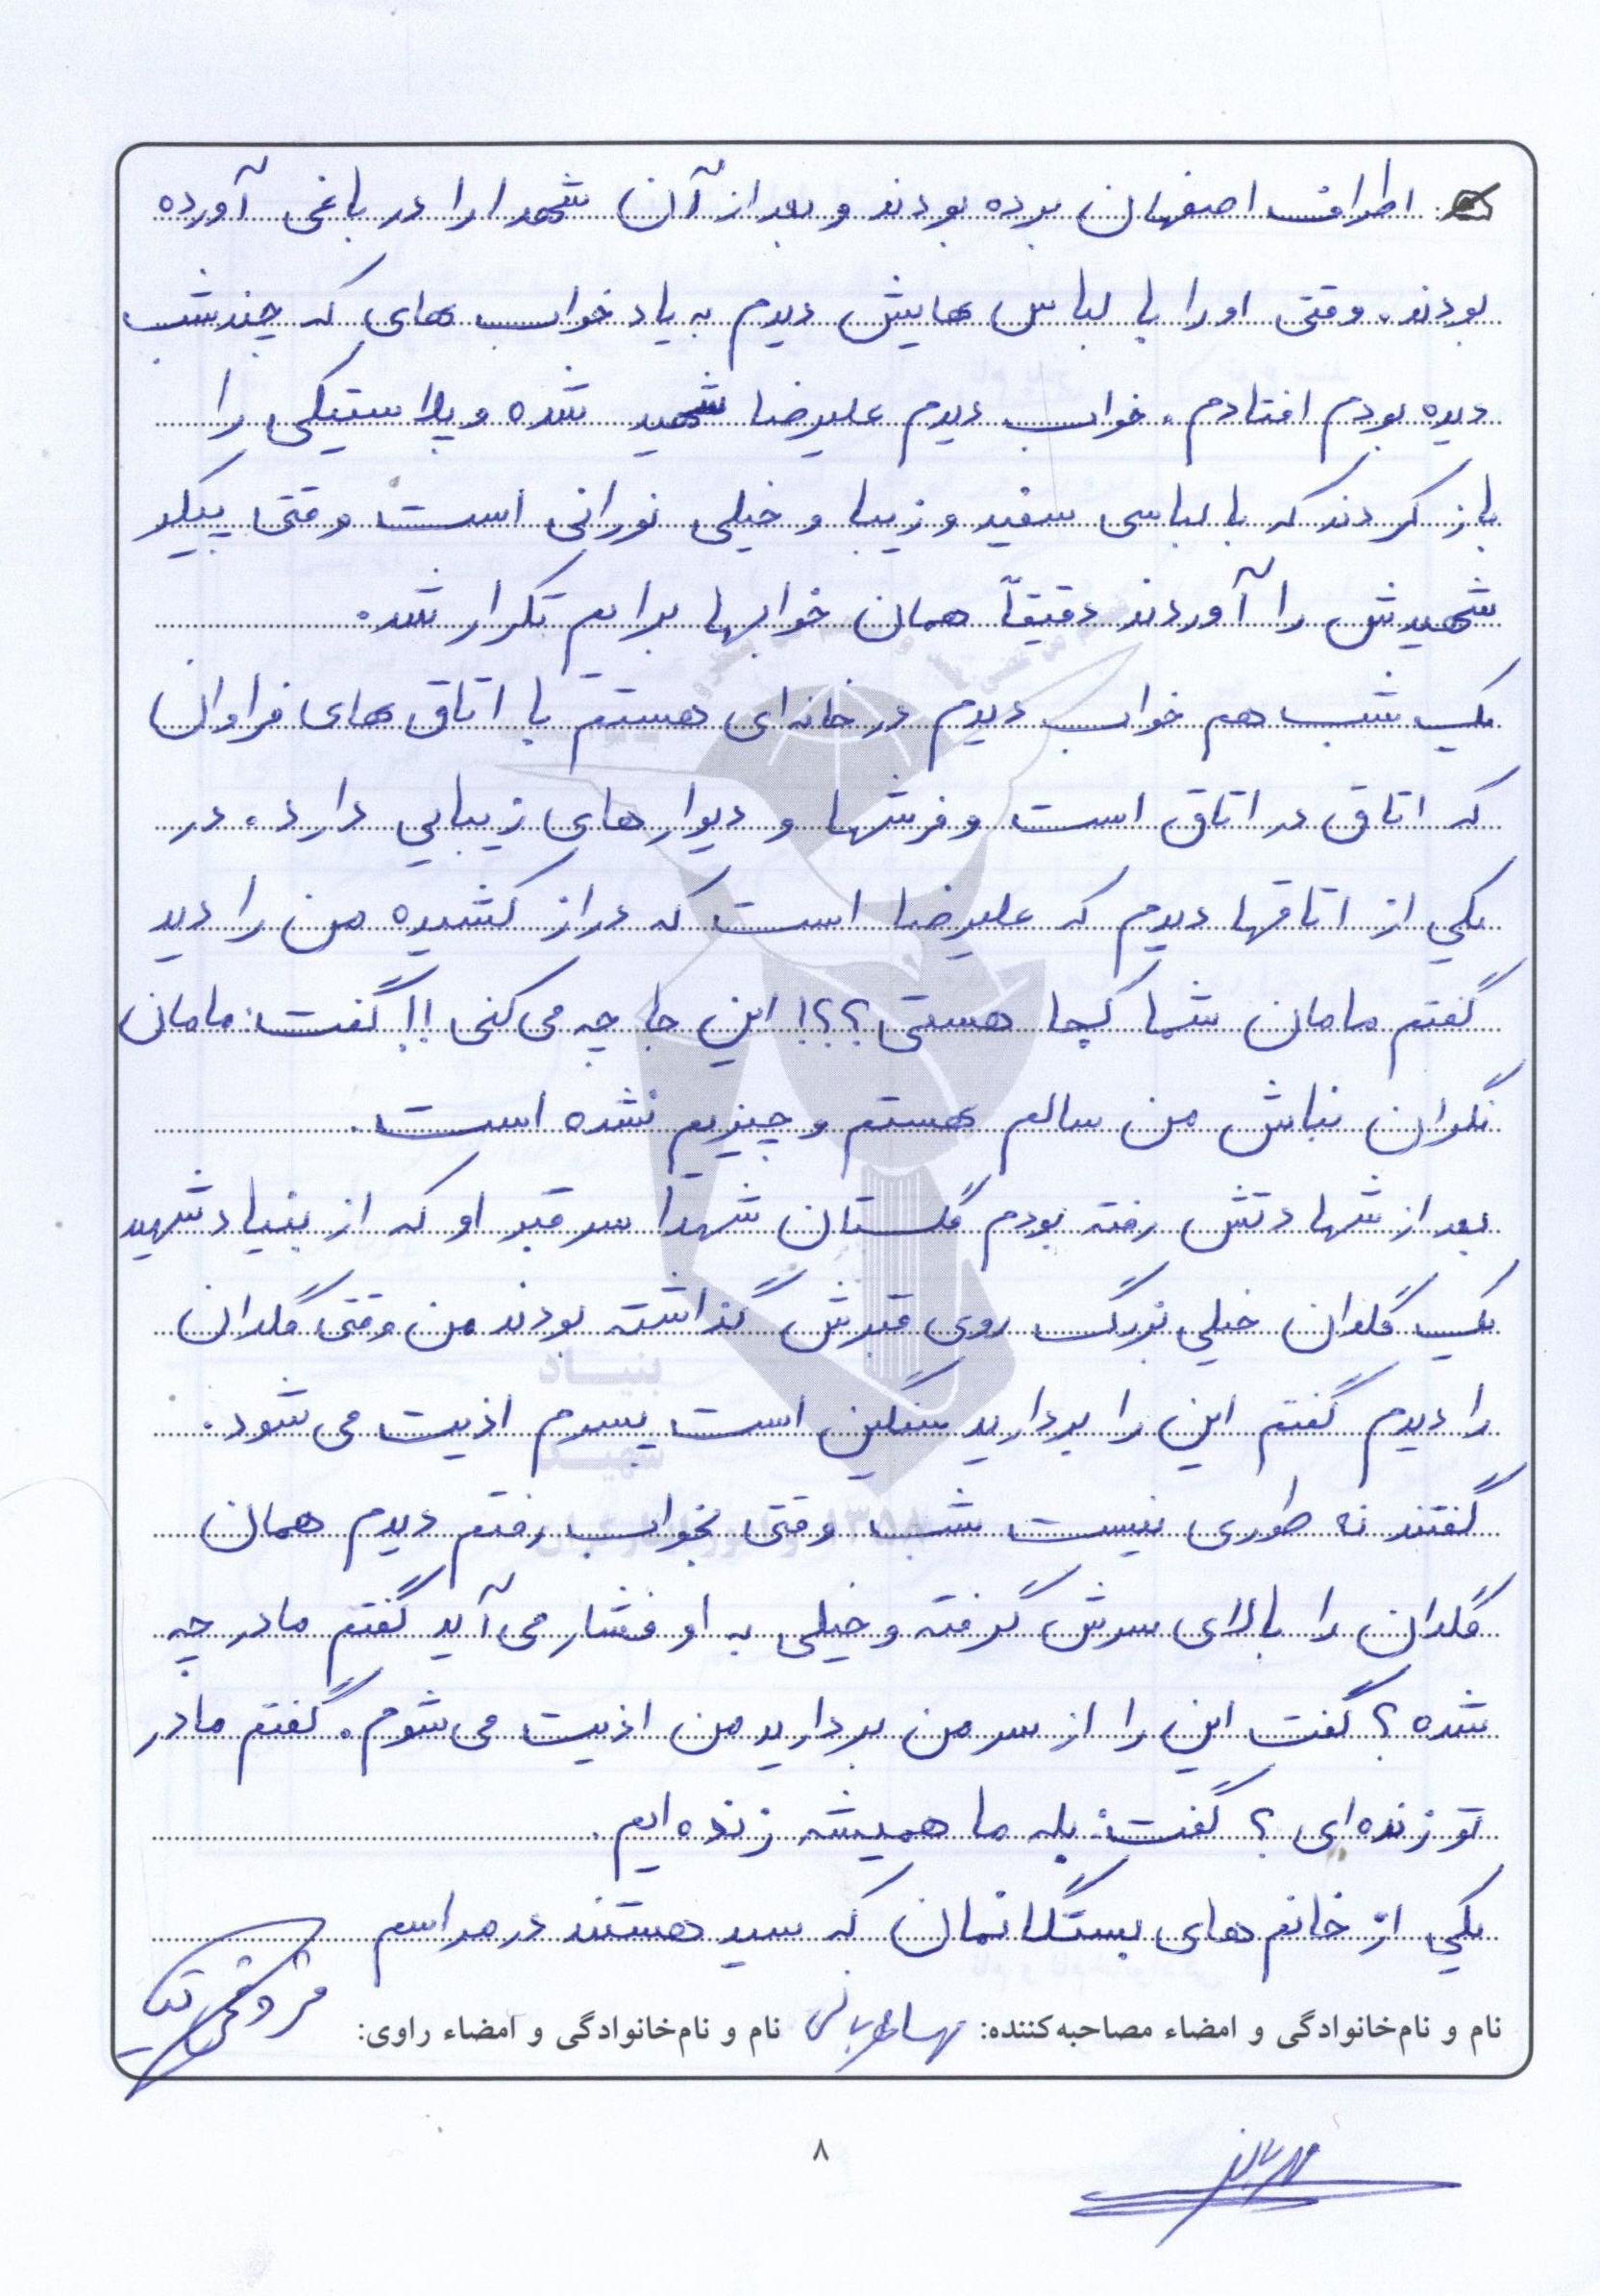 اطراف اصفهان برده بودند و بعد از آن شهدا را در باغی آورده
بودند. وقتی او را با لباس هایش دیدم به یاد خواب های که چند شب
دیده بودم افتادم. خواب دیدم علیرضا شهید شده و پلاستیکی را
باز کردند که با لباسی سفید و زیبا و خیلی نورانی است وقتی پیکر
شهیدش را آوردند دقیقاً همان خوابها برایم تکرار شد.
یک شب هم خواب دیدم در خانه‌ای هستم با اتاق های فراوان
که اتاق در اتاق است و فرشها و دیوارهای زیبایی دارد، در
یکی از اتاقها دیدم که علیرضا است که دراز کشیده من را دید
گفتم مامان شما کجا هستی؟؟؟! این جا چه می‌کنی!! گفت: مامان
نگران نباش من سالم هستم و چیزیم نشده است.
بعد از شهادتش رفته بودم گلستان شهدا سر قبر او که از بنیاد شهید
یک گلدان خیلی بزرگ روی قبرش گذاشته بودند من وقتی گلدان
را دیدم گفتم این را بردارید سنگین است پسرم اذیت می‌شود.
گفتند نه طوری نیست شب وقتی بخواب رفتم دیدم همان
گلدان را بالای سرش گرفته و خیلی به او فشار می‌آید گفتم مادر چه
شده؟ گفت این را از سر من بردارید من اذیت می‌شوم. گفتم مادر
تو زنده‌ای؟ گفت: بله ما همیشه زنده‌ایم.
یکی از خانم های بستگانمان که سید هستند در مراسم
نام و نام‌خانوادگی و امضاء مصاحبه‌کننده: نام و نام‌خانوادگی و امضاء راوی:
۸